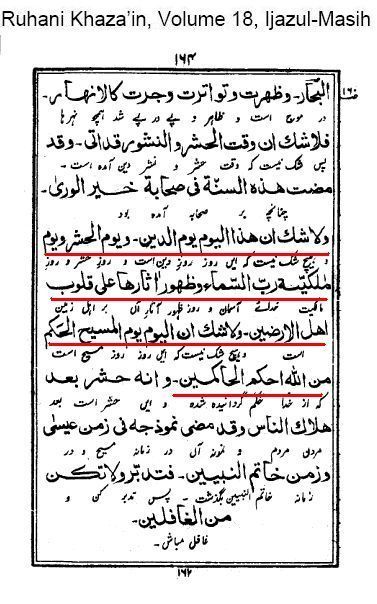 Ruhani Khaza'in, Volume 18, Ijazul-Masih
۱۶۴
البحار۔ وظهرت وتواترت وجرت كالانهار۔
در موج است و ظاهر و پے در پے شد ہمچو نہرہا
فلا شك ان وقت الحشر والنشور قد اتى۔ وقد
پس شک نیست کہ وقت حشر و نشر دین آمده است۔
مضت هذه السنّة فى صحابة خير الورى۔
چنانچہ بر صحابہ آمده بود
ولا شك ان هذا اليوم يوم الدين۔ ويوم الحشر ويوم
و ہیچ شک نیست کہ ایں روز روز دین است و روز حشر و روز
مٰلكيّة ربّ السّماء وظهور اٰثارها على قلوب
مالکیت خدائے آسمان و روز ظہور آثار آں بر اہل زمین
اهل الارضين۔ ولا شك ان اليوم يوم المسيح الحَكَم
است و ہیچ شک نیست کہ ایں روز روز مسیح است
من الله احكم الحاكمين۔ وانه حشر بعد
کہ از خدا حکم گردانیده شده و ایں حشر است بعد
هلاك الناس وقد مضى نموذجه فى زمن عيسى
مردن مردم و نمونہ آں در زمانہ مسیح و در
وزمن خاتم النبيين۔ فتدبّر ولا تكن
زمانہ خاتم النبیین بگذشت۔ پس تدبر کن و
من الغافلين۔
غافل مباش۔